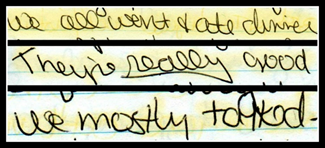 we all went & ate dinner
They're really good
we mostly talked.